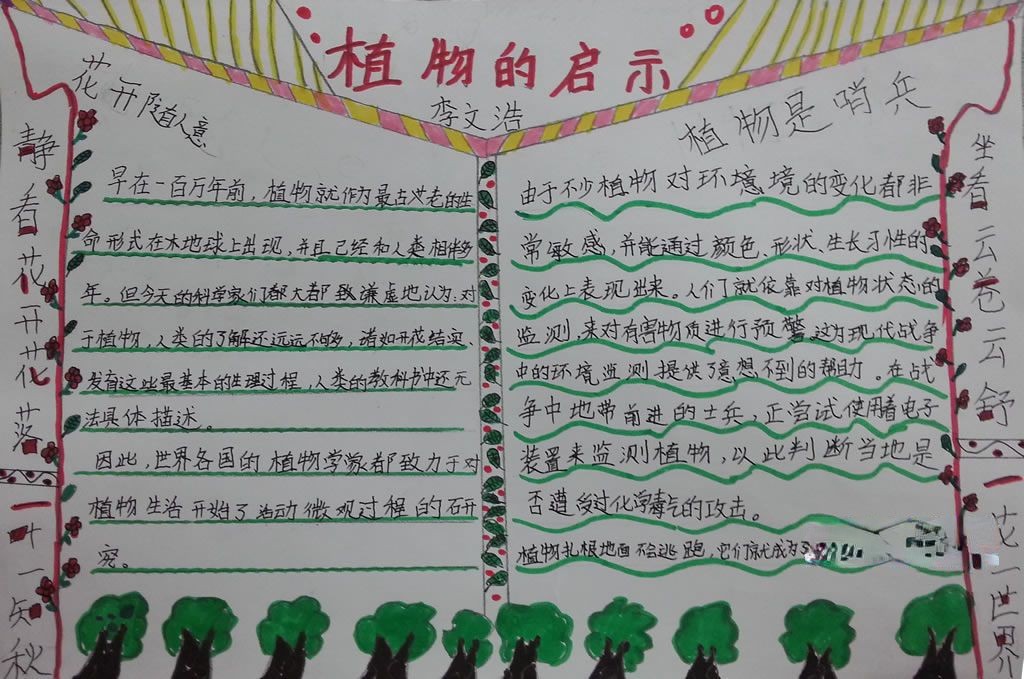 植物的启示
李文浩
静看花开花落
一叶一知秋
花开随人意
早在一百万年前，植物就作为最古老的生
命形式在木地球上出现，并且已经和人类相伴多
年。但今天的科学家们都大都致谦虚地认为：对
于植物，人类的了解还远远不够多，诸如开花结实、
发育这些最基本的生理过程，人类的教科书中还无
法具体描述。
因此，世界各国的植物学家都致力于对
植物生活开始了活动微观过程的研
究。
植物是哨兵
由于不少植物对环境境的变化都非
常敏感，并能通过颜色、形状、生长习性的
变化上表现出来。人们了就依靠对植物状态的
监测，来对有害物质进行预警，这为现代战争
中的环境监测提供了意想不到的帮助。在战
争中地带前进的士兵，正尝试使用着电子
装置来监测植物，以此判断当地是
否遭受过化学毒气的攻击。
植物扎根地面不会逃跑，它们就成为了
坐看云卷云舒
一花一世界